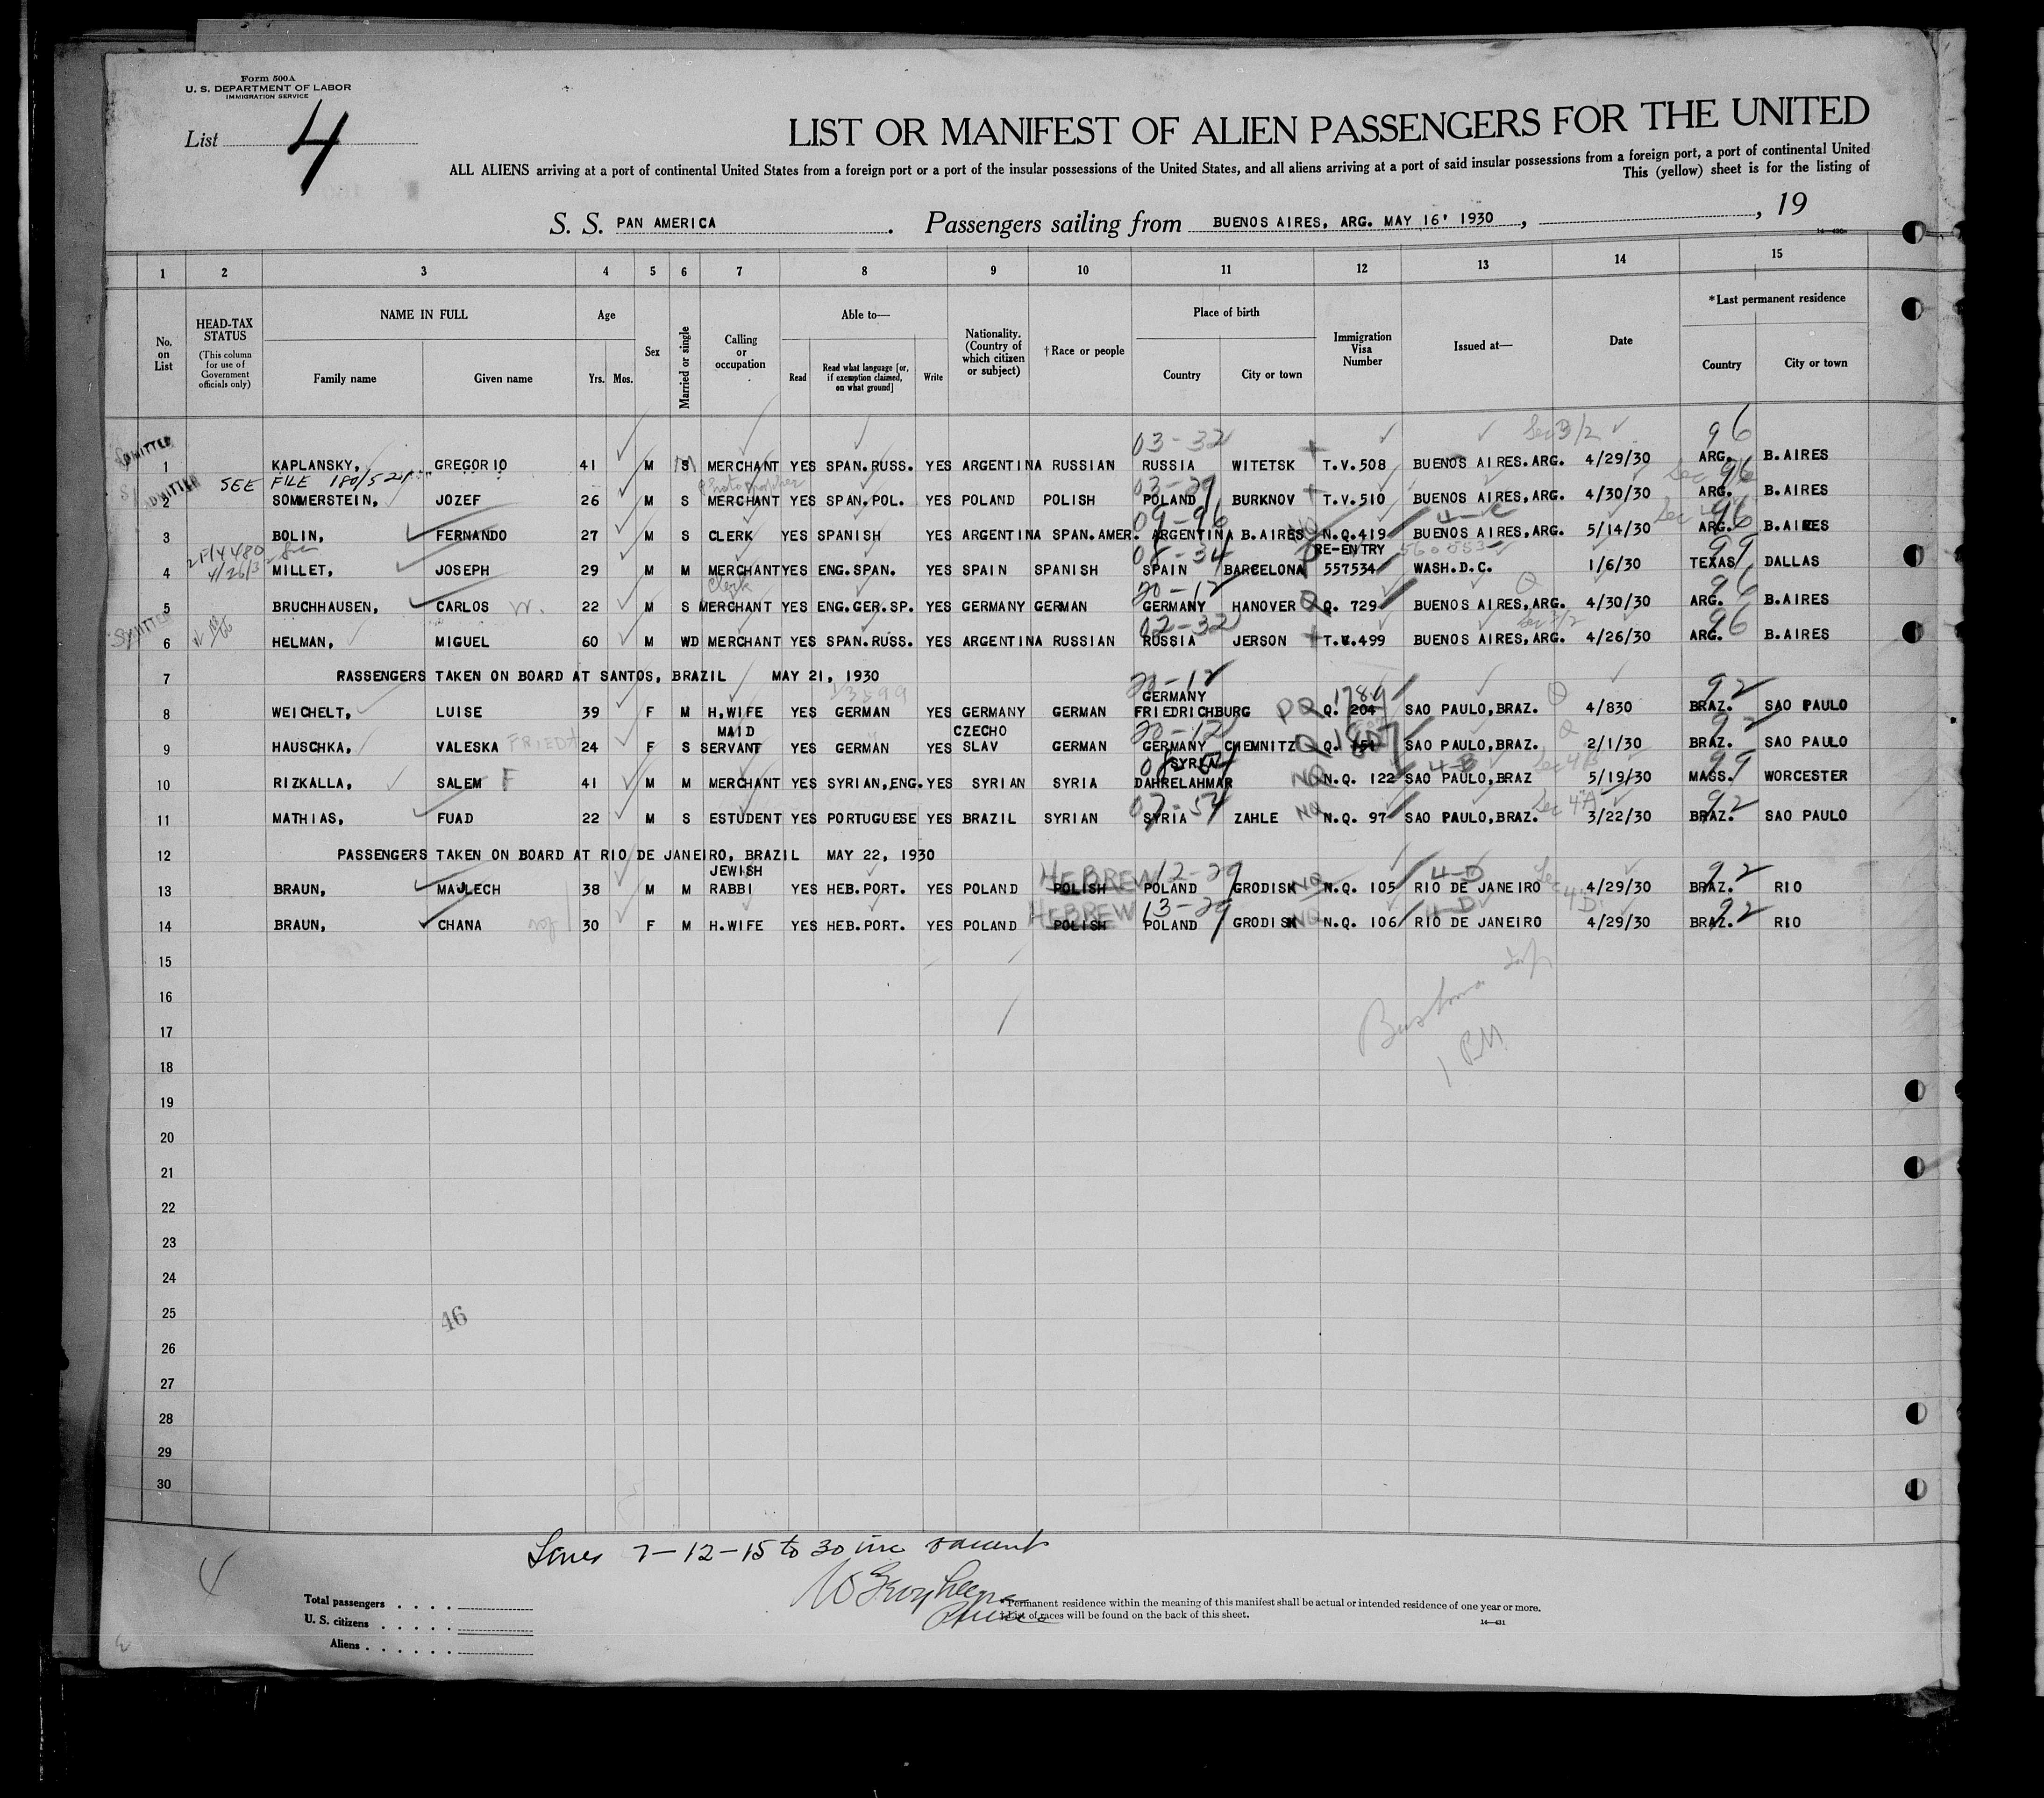 Form 500A
U. S. DEPARTMENT OF LABOR
IMMIGRATION SERVICE
List 4
LIST OR MANIFEST OF ALIEN PASSENGERS FOR THE UNITED
ALL ALIENS arriving at a port of continental United States from a foreign port or a port of the insular possessions of the United States, and all aliens arriving at a port of said insular possessions from a foreign port, a port of continental United
This (yellow) sheet is for the listing of
S. S. PAN AMERICA . Passengers sailing from BUENOS AIRES, ARG. MAY 16' 1930 , , 19
1 2 3 4 5 6 7 8 9 10 11 12 13 14 15
No. on List
HEAD-TAX STATUS (This column for use of Government officials only)
NAME IN FULL
Family name Given name
Age
Yrs. Mos.
Sex
Married or single
Calling or occupation
Able to—
Read Read what language [or, if exemption claimed, on what ground] Write
Nationality. (Country of which citizen or subject)
†Race or people
Place of birth
Country City or town
Immigration Visa Number
Issued at—
Date
*Last permanent residence
Country City or town
03-32 Sec 3/2 96
ADMITTED 1 KAPLANSKY, GREGORIO 41 M S M MERCHANT YES SPAN.RUSS. YES ARGENTINA RUSSIAN RUSSIA WITETSK T.V.508 BUENOS AIRES.ARG. 4/29/30 ARG. B.AIRES
SEE FILE Photographer 03-29 Sec 96
ADMITTED 2 SOMMERSTEIN, JOZEF 26 M S MERCHANT YES SPAN.POL. YES POLAND POLISH POLAND BURKNOV T.V.510 BUENOS AIRES,ARG. 4/30/30 ARG. B.AIRES
09-96 NQ 4-C Sec 96
3 BOLIN, FERNANDO 27 M S CLERK YES SPANISH YES ARGENTINA SPAN.AMER. ARGENTINA B.AIRES N.Q.419 BUENOS AIRES,ARG. 5/14/30 ARG. B.AIRES
4/26/3 08-34 RE-ENTRY 560553 99
4 MILLET, JOSEPH 29 M M MERCHANT YES ENG.SPAN. YES SPAIN SPANISH SPAIN BARCELONA P 557534 WASH.D.C. 1/6/30 TEXAS DALLAS
Clerk 20-12 Q 96
5 BRUCHHAUSEN, CARLOS W. 22 M S MERCHANT YES ENG.GER.SP. YES GERMANY GERMAN GERMANY HANOVER Q Q. 729 BUENOS AIRES,ARG. 4/30/30 ARG. B.AIRES
02-32 Sec 3/2 96
ADMITTED 6 HELMAN, MIGUEL 60 M WD MERCHANT YES SPAN.RUSS. YES ARGENTINA RUSSIAN RUSSIA JERSON T.V.499 BUENOS AIRES,ARG. 4/26/30 ARG. B.AIRES
7 RASSENGERS TAKEN ON BOARD AT SANTOS, BRAZIL MAY 21, 1930
20-12 GERMANY 1784 Q 92
8 WEICHELT, LUISE 39 F M H,WIFE YES GERMAN YES GERMANY GERMAN FRIEDRICHBURG PQ Q. 204 SAO PAULO,BRAZ. 4/830 BRAZ. SAO PAULO
MAID CZECHO 20-12 Q 92
9 HAUSCHKA, VALESKA FRIEDA 24 F S SERVANT YES GERMAN YES SLAV GERMAN GERMANY CHEMNITZ Q Q. SAO PAULO,BRAZ. 2/1/30 BRAZ. SAO PAULO
SYRIA 4-B Sec 4B 99
10 RIZKALLA, SALEM F 41 M M MERCHANT YES SYRIAN,ENG. YES SYRIAN SYRIA DAHRELAHMAR NQ N.Q. 122 SAO PAULO,BRAZ 5/19/30 MASS. WORCESTER
07-54 Sec 4"A" 92
11 MATHIAS, FUAD 22 M S ESTUDENT YES PORTUGUESE YES BRAZIL SYRIAN SYRIA ZAHLE NQ N.Q. 97 SAO PAULO,BRAZ. 3/22/30 BRAZ. SAO PAULO
12 PASSENGERS TAKEN ON BOARD AT RIO DE JANEIRO, BRAZIL MAY 22, 1930
JEWISH HEBREW 12-29 4-D Sec 4D 92
13 BRAUN, MAJLECH 38 M M RABBI YES HEB.PORT. YES POLAND POLISH POLAND GRODISK NQ N.Q. 105 RIO DE JANEIRO 4/29/30 BRAZ. RIO
HEBREW 13-29 4-D 92
14 BRAUN, CHANA 30 F M H.WIFE YES HEB.PORT. YES POLAND POLISH POLAND GRODISK NQ N.Q. 106 RIO DE JANEIRO 4/29/30 BRAZ. RIO
15
16
17
18
19
20
21
22
23
24
25
46
26
27
28
29
30
Lines 7-12-15 to 30 inc vacant
Total passengers
U. S. citizens
Aliens
*Permanent residence within the meaning of this manifest shall be actual or intended residence of one year or more.
†List of races will be found on the back of this sheet.
14—431